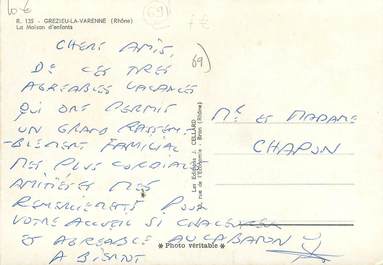 10 €
69
7 €
R. 135 - GREZIEU-LA-VARENNE (Rhône)
La Maison d'enfants
69)
CHERS AMIS,
DE CES TRES
AGREABLES VACANCES
QUI ONT PERMIS
UN GRAND RASSEM-
BLEMENT FAMILIAL
MES PLUS CORDIALES
AMITIES ET MES
REMERCIEMENTS POUR
VOTRE ACCUEIL SI CHALEUREUX
ET AGREABLE AU CABANON
A BIENTOT
Les Editions J. CELLARD
rue de l'Economie - Bron (Rhône)
Mr ET MADAME
CHAPON
* Photo véritable *